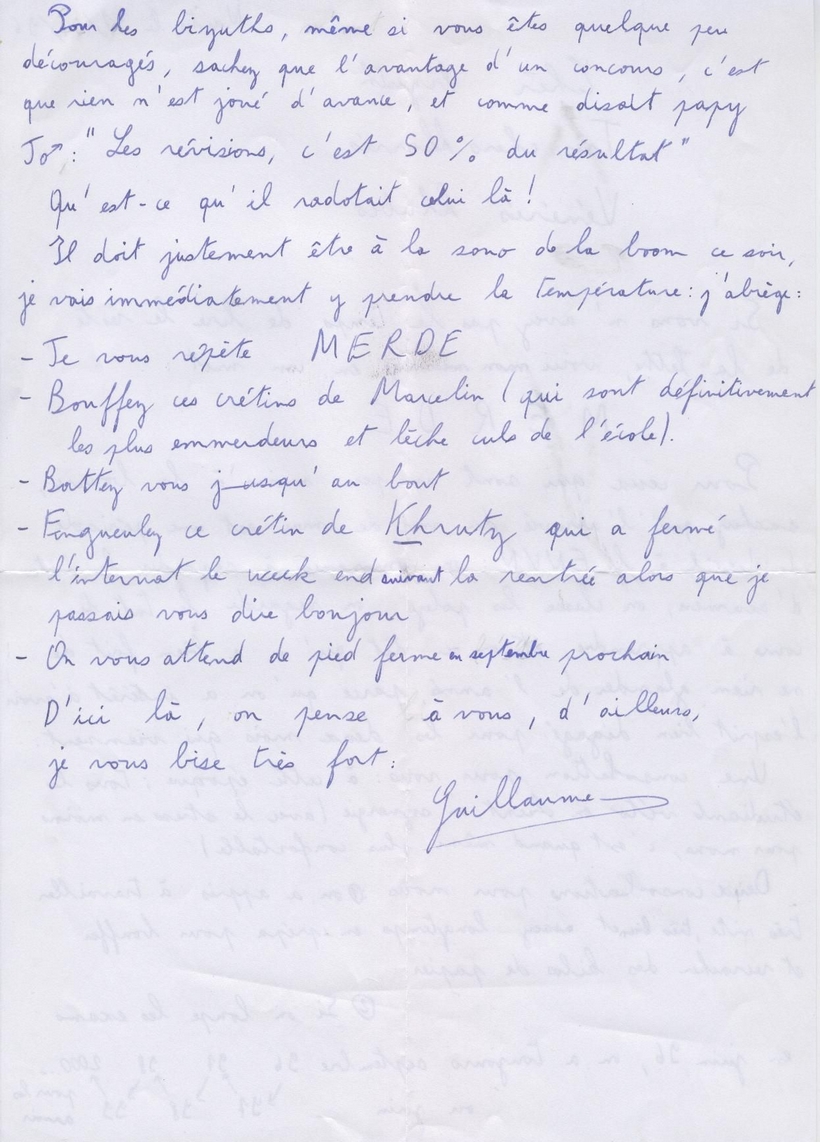 Pour les bizuths, même si vous êtes quelque peu
découragés, sachez que l'avantage d'un concours, c'est
que rien n'est joué d'avance, et comme disait papy
Jo : "Les révisions, c'est 50% du résultat"
Qu'est-ce qu'il radotait celui là !
Il doit justement être à la sono de la boom ce soir,
je vais immédiatement y prendre la température : j'abrège :
- Je vous répète MERDE
- Bouffez ces crétins de Marcelin (qui sont définitivement
les plus emmerdeurs et lèche culs de l'école).
- Battez vous jusqu'au bout
- Engueulez ce crétin de Khruty qui a fermé
l'internat le week end suivant la rentrée alors que je
passais vous dire bonjour
- On vous attend de pied ferme en septembre prochain
D'ici là, on pense à vous, d'ailleurs,
je vous bise très fort :
Guillaume